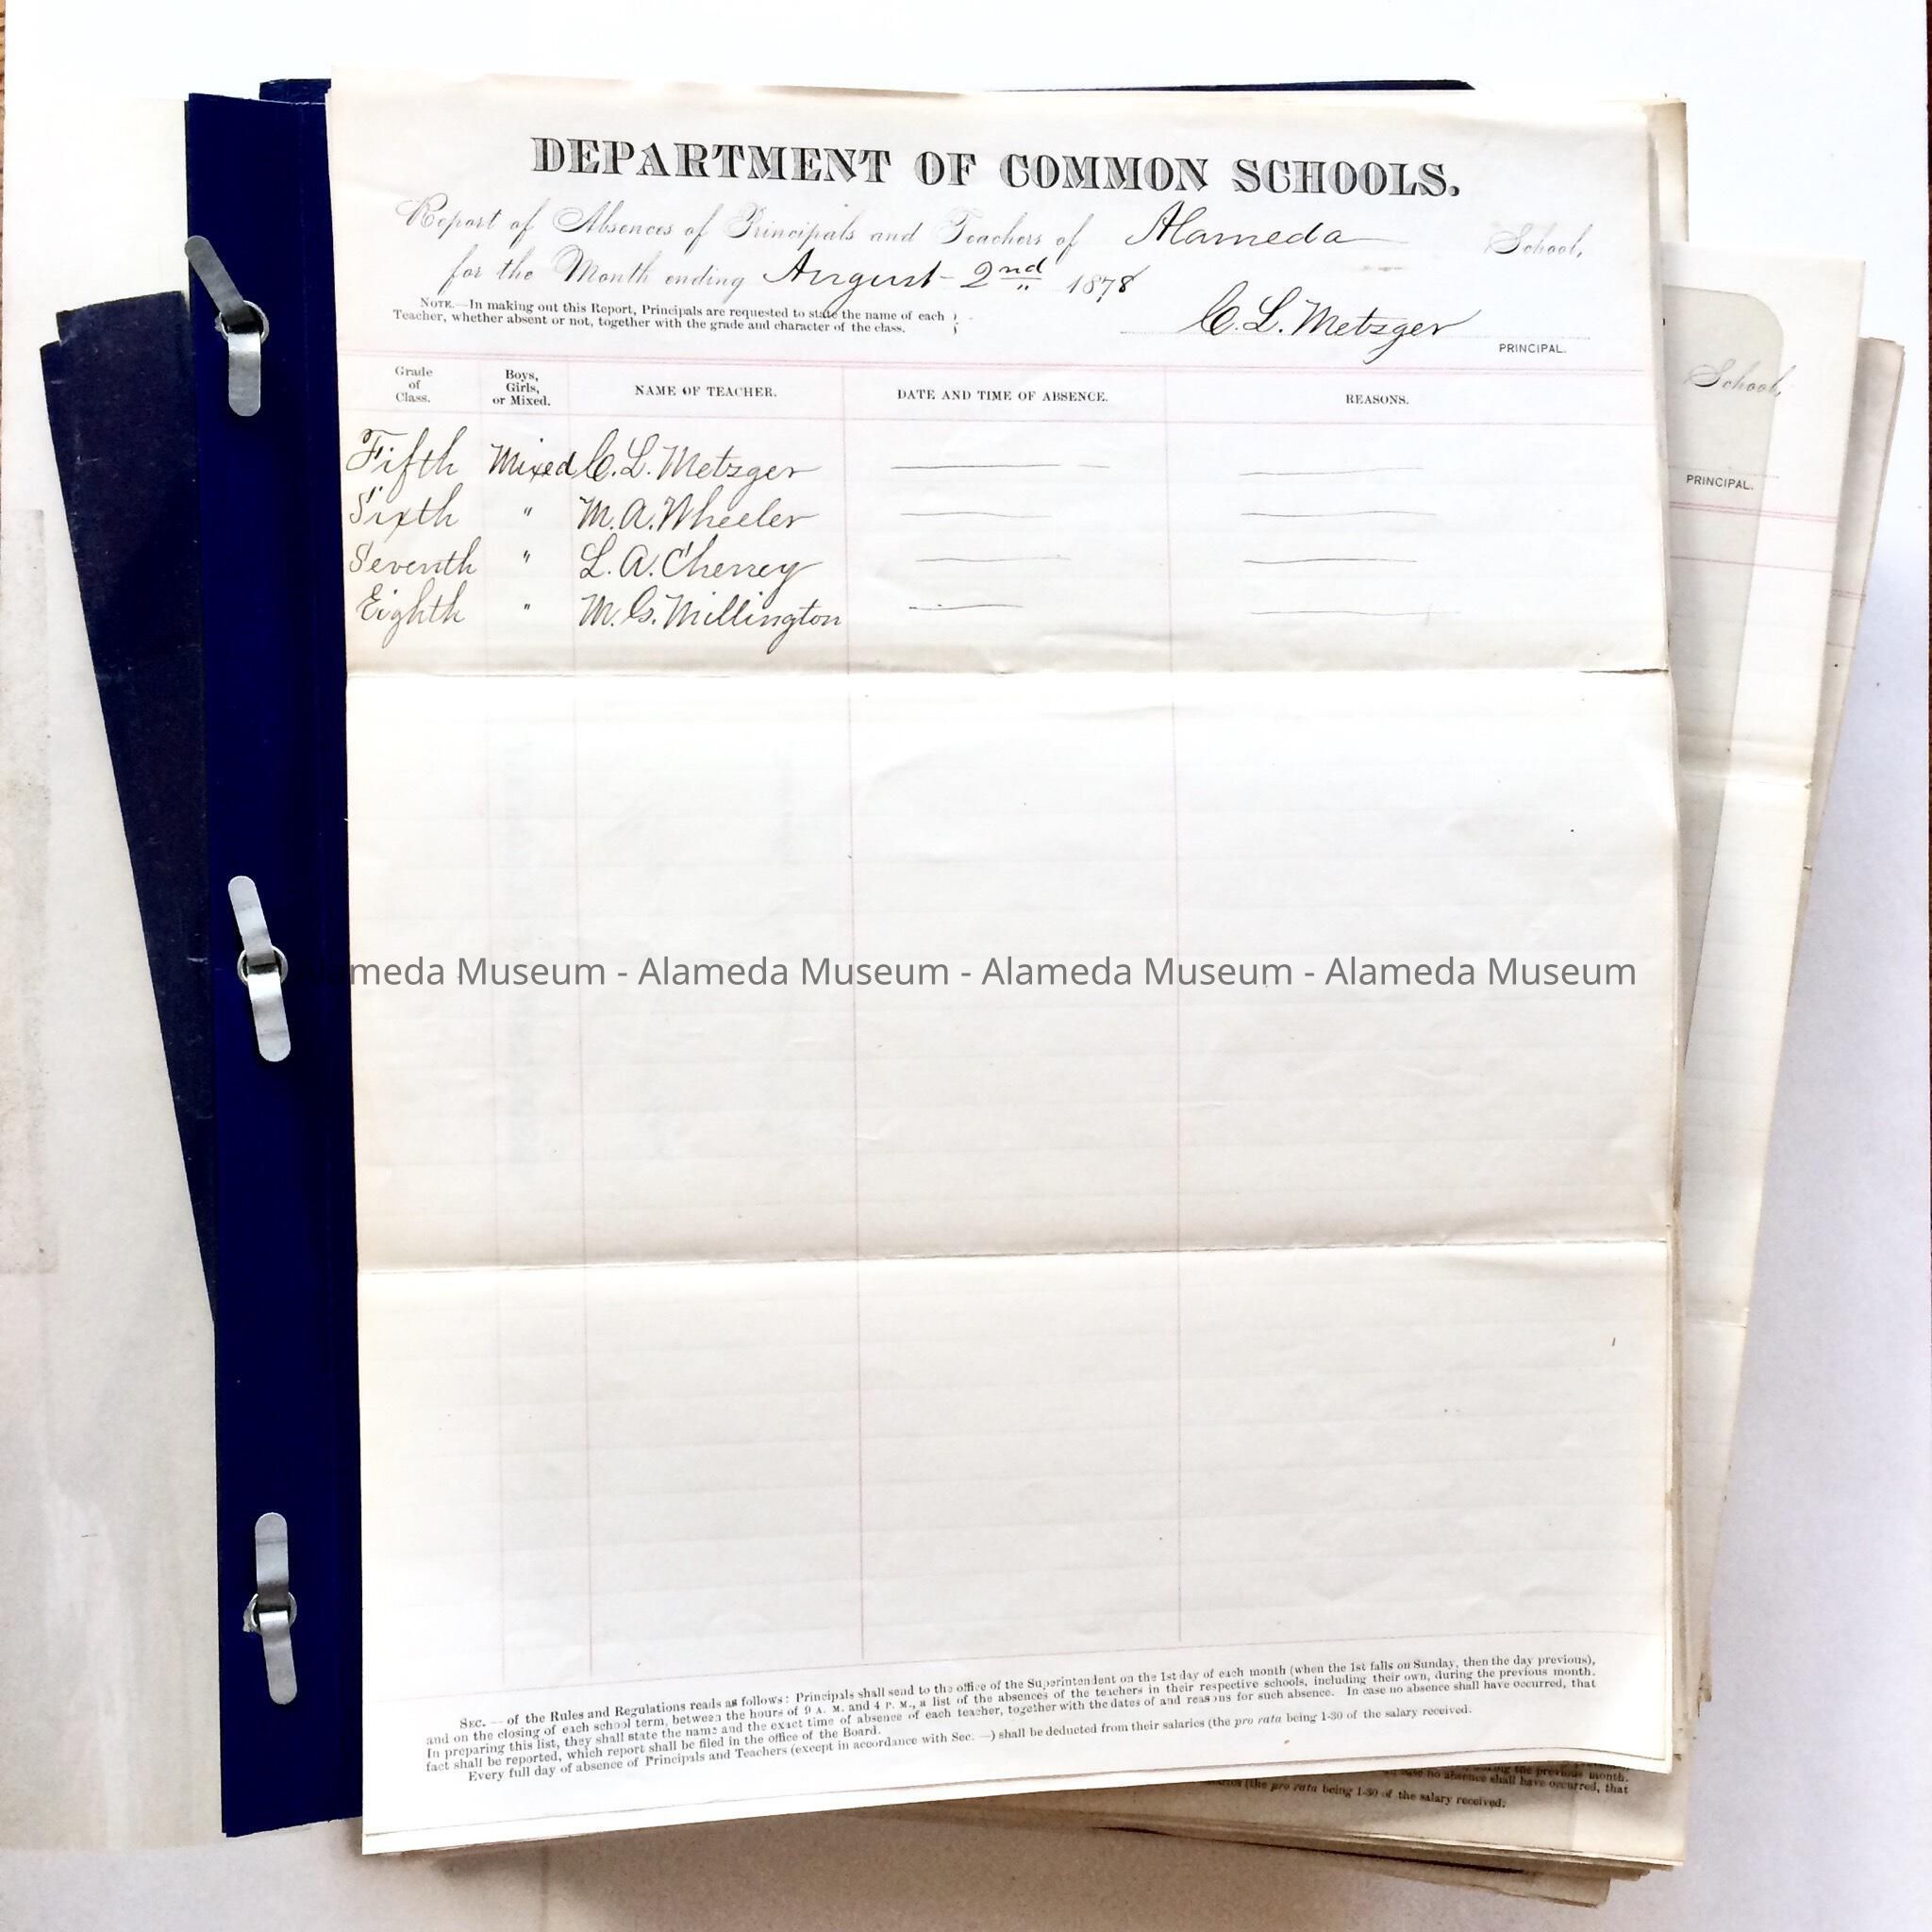 DEPARTMENT OF COMMON SCHOOLS.
Report of Absences of Principals and Teachers of Alameda School,
for the Month ending August 2nd 1878
NOTE.—In making out this Report, Principals are requested to state the name of each
Teacher, whether absent or not, together with the grade and character of the class.
C. L. Metzger
PRINCIPAL.
Grade of Class. Boys, Girls, or Mixed. NAME OF TEACHER. DATE AND TIME OF ABSENCE. REASONS.
Fifth Mixed C. L. Metzger
Sixth " M. A. Wheeler
Seventh " L. A. Cheney
Eighth " M. G. Millington
School,
PRINCIPAL.
Alameda Museum - Alameda Museum - Alameda Museum - Alameda Museum
SEC. — of the Rules and Regulations reads as follows: Principals shall send to the office of the Superintendent on the 1st day of each month (when the 1st falls on Sunday, then the day previous),
and on the closing of each school term, between the hours of 9 A. M. and 4 P. M., a list of the absences of the teachers in their respective schools, including their own, during the previous month.
In preparing this list, they shall state the name and the exact time of absence of each teacher, together with the dates of and reasons for such absence. In case no absence shall have occurred, that
fact shall be reported, which report shall be filed in the office of the Board.
Every full day of absence of Principals and Teachers (except in accordance with Sec. —) shall be deducted from their salaries (the pro rata being 1-30 of the salary received.
during the previous month.
no absence shall have occurred, that
(the pro rata being 1-30 of the salary received.